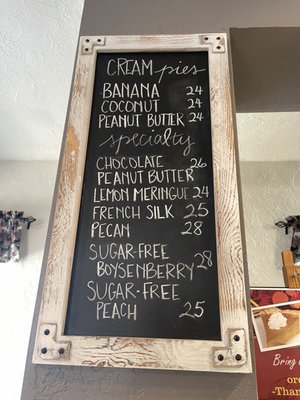 CREAM pies
BANANA 24
COCONUT 24
PEANUT BUTTER 24
specialty
CHOCOLATE 26
PEANUT BUTTER
LEMON MERINGUE 24
FRENCH SILK 25
PECAN 28
SUGAR-FREE
BOYSENBERRY 28
SUGAR-FREE
PEACH 25
Bring
ore
-Than